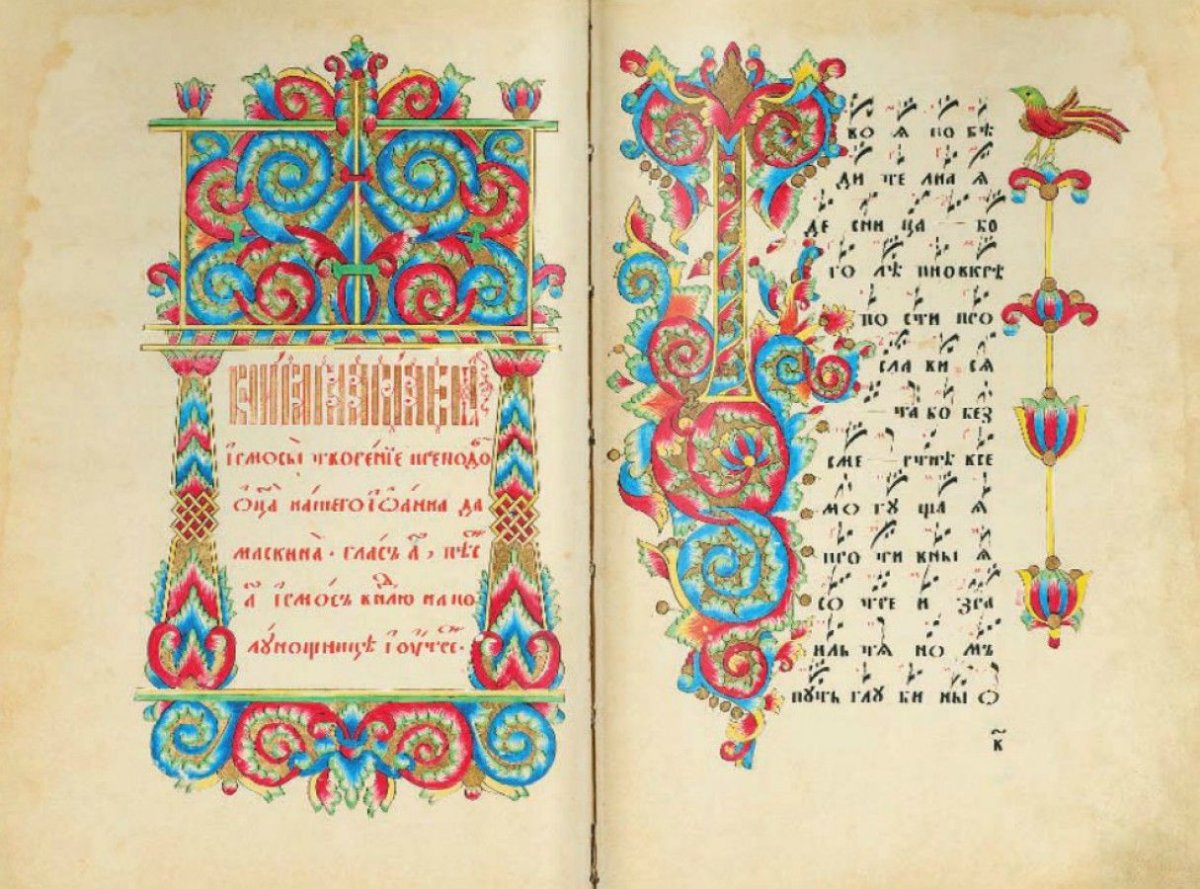 І҆рмосы̀ творе́нїе преподо
ѻ҆ц҃а на́шего І҆ѡа́нна да
маскина̀ · гла́съ а҃ , пѣс
а҃ І҆рмосъ в нлю на по
лу́нощницѣ і оу҆тре ·
Т
воѧ побѣ
ди те лна ѧ
де сни ца — бо
го лѣ пновкрѣ
по сти про
сла ви сѧ
— та бо без
сме — ртне все
мо гꙋ ща ѧ
про ти вны ѧ
со тре и зра
иль тѧ но мъ
путь глу би ны о
к҃